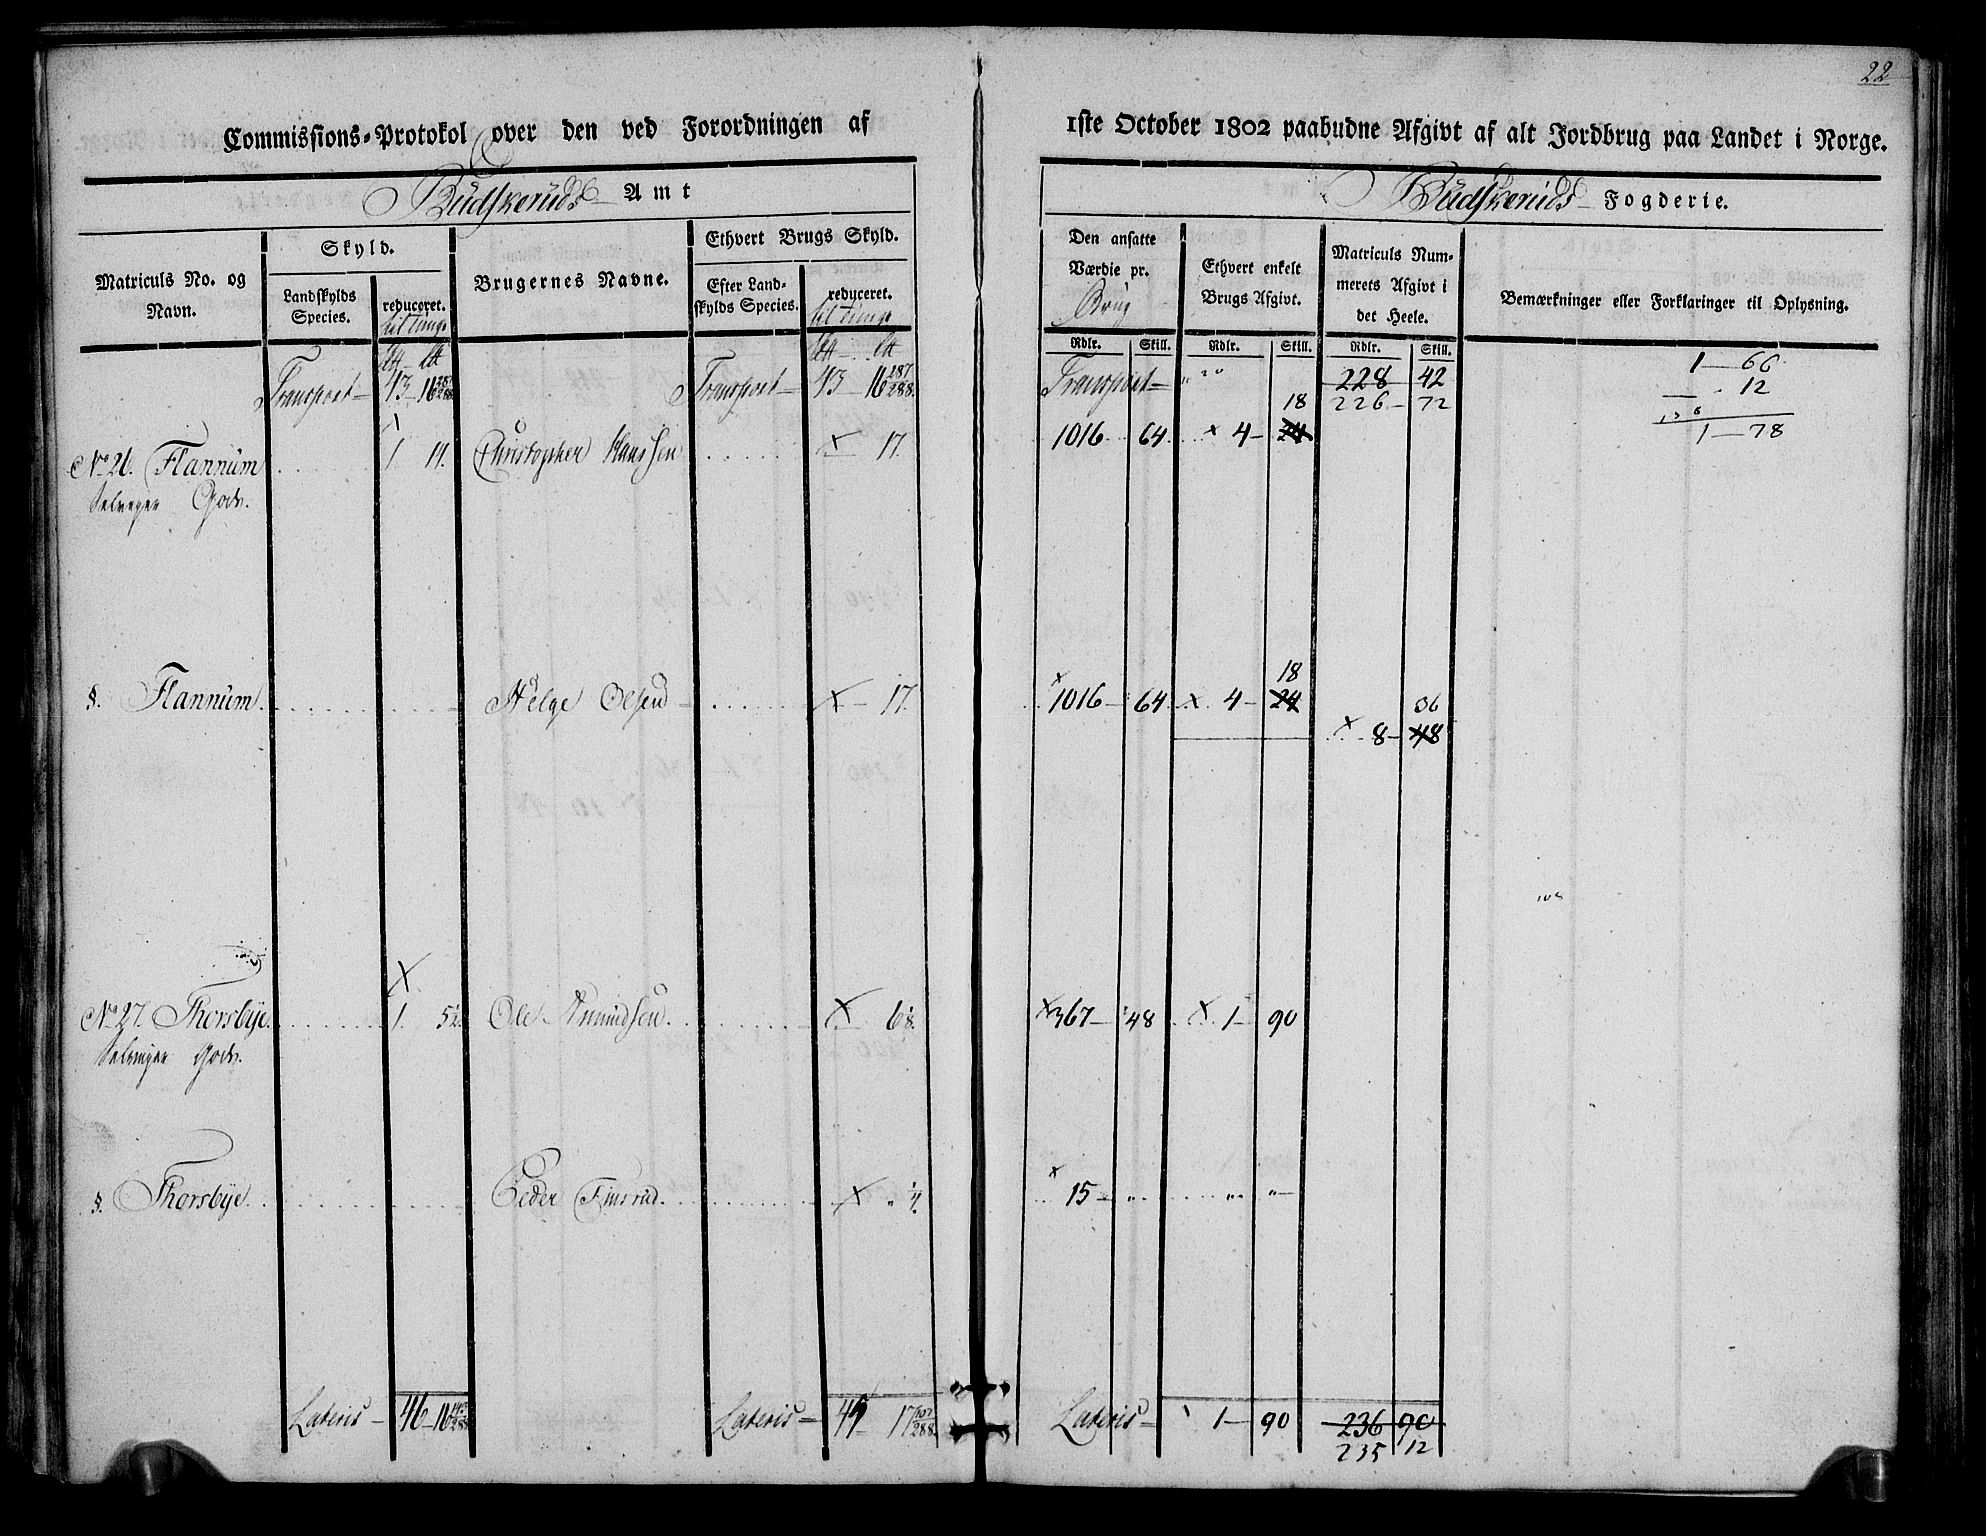 22
Commissions-Protokol over den ved Forordningen af 1ste October 1802 paabudne Afgivt af alt Jordbrug paa Landet i Norge.
Budskeruds Amt
Budskeruds Fogderie.
Matriculs No. og Navn.
Skyld.
Landskylds Species.
reduceret. til tunge
Brugernes Navne.
Ethvert Brugs Skyld.
Efter Landskylds Species.
reduceret. til tunge
Den ansatte Værdie pr. Brug
Ethvert enkelt Brugs Afgivt.
Matriculs Nummerets Afgivt i det Heele.
Bemærkninger eller Forklaringer til Oplysning.
Rdlr. Skill. Rdlr. Skill. Rdlr. Skill.
Transport 43 16 287/288 Transport 43 16 287/288 Transport 228 42 1 66
226 72 12
18
No 26. Flannum 1 14. Christopher Hanssen x 17. 1016 64 x 4 24 1 78
Selveyer Gods.
18
§. Flannum Helge Olsen x 17. x 1016 64 x 4 24
36
x 8 48
x
No 27. Thorsbye 1. 5 1/2 Ole Amundsen x 6 1/8 x 367 48 x 1 90
Selveyer Gods.
§. Thorsbye Peder Finsrud x " 1/4. x 15 " " "
Lateris 46 16 143/288 Lateris 45 17 107/288 Lateris 1 90 236 90
235 12